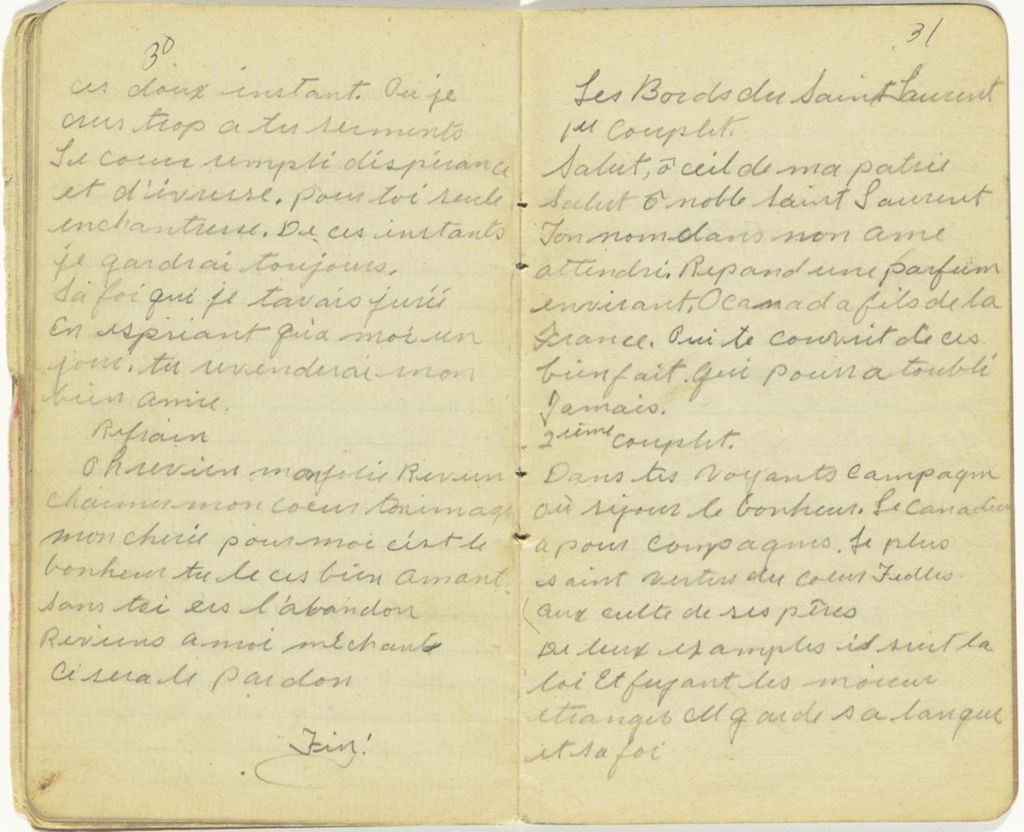 30
ces doux instant. Ou je
crus trop a tes serments
Le coeur rempli d'espérance
et d'ivresse. pour toi seule
enchantresse. De ces instants
je gardrai toujours.
La foi qui je tavais jurié
En espriant qu'a moi un
jour. tu revienderai mon
bien amie.
Refrain
Oh revien ma jolie Revien
charmer mon coeur ton image
mon cherie pour moi cést le
bonheur tu le ces bien amant
sans toi ces l'abandon
Reviens a moi méchante
Ci sera le Pardon
Fin!
31
Les Bords du Saint Laurent
1er Couplet.
Salut, ô ceil de ma patrie
Salut ô noble Saint Laurent
Ton nom dans mon ame
attendri. Repand une parfum
envirant. O Canada fils de la
France. Qui te couvrit de ces
bienfait. Qui pourra toublié
Jamais.
2ième Couplet.
Dans tes Voyants Campagne
où sijour le bonheur. Le Canadien
a pour Compagnes. Le plus
saint vertus du coeur Fidles
aux culte de ses pères
De leux examples il suit la
loi Et fuyant les moieur
etranger Il garde sa langue
et sa foi